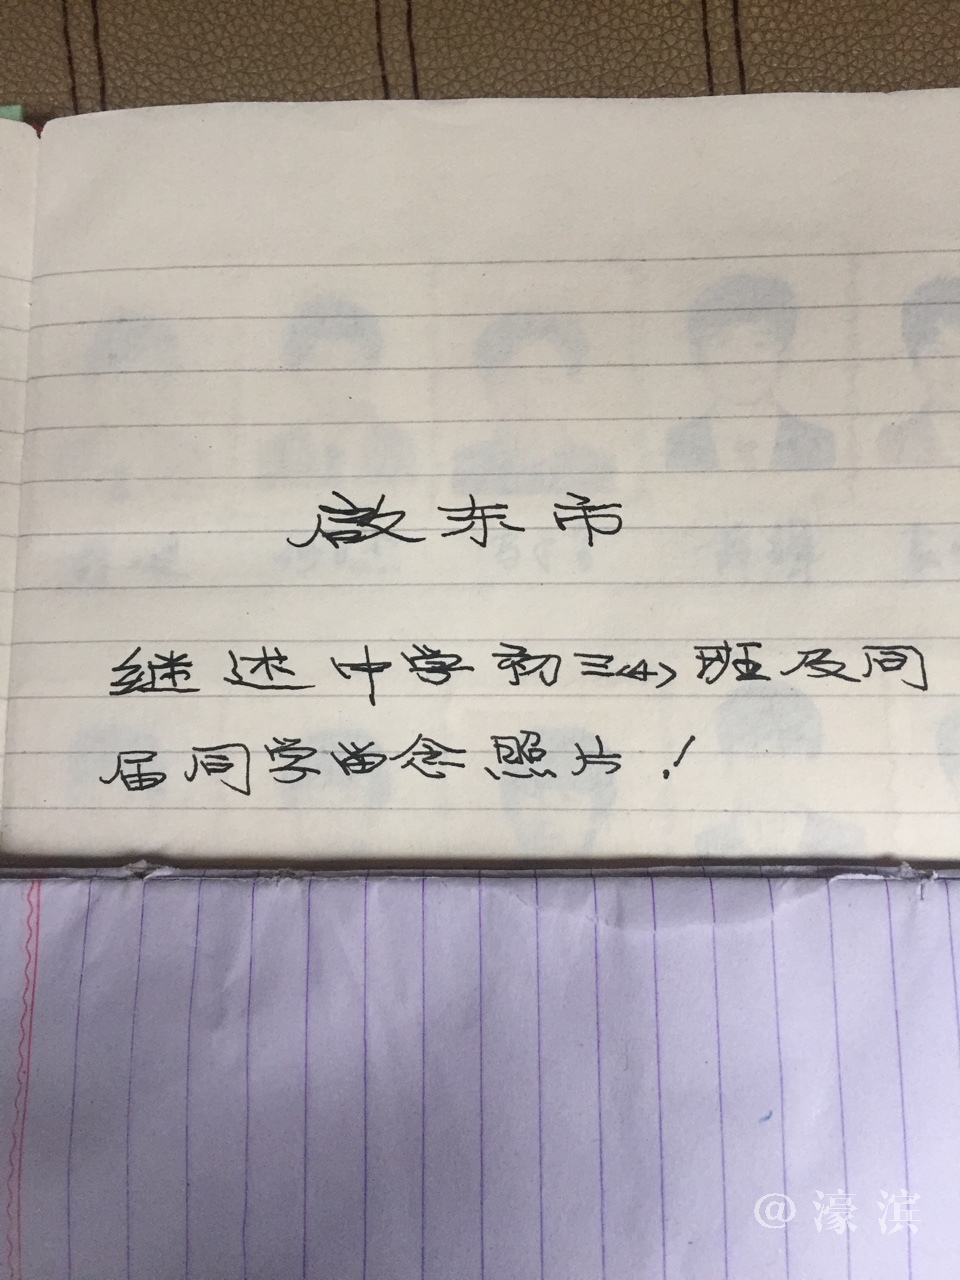 启东市
继述中学初三<4>班及同
届同学留念照片！
@濠滨